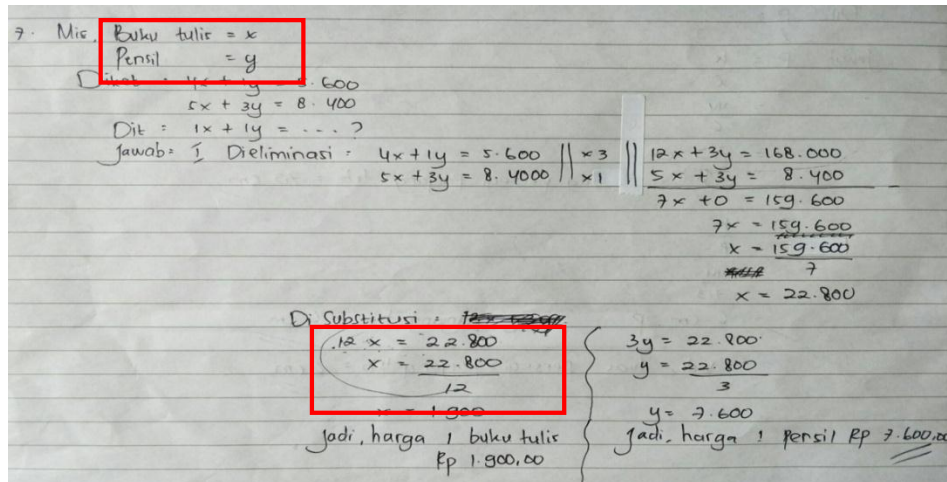 7. Mis. Buku tulis = x
Pensil = y
Diket : 4x + 1y = 5.600
5x + 3y = 8.400
Dit : 1x + 1y = ....?
Jawab = I Dieliminasi : 4x + 1y = 5.600 || x3 || 12x + 3y = 168.000
5x + 3y = 8.4000 || x1 || 5x + 3y = 8.400 -
7x + 0 = 159.600
7x = 159.600
x = 159.600
7
x = 22.800
Di Substitusi :
12 x = 22.800
x = 22.800
12
x = 1.900
Jadi, harga 1 buku tulis
Rp 1.900,00
3y = 22.800
y = 22.800
3
y = 7.600
Jadi, harga 1 pensil Rp 7.600,00